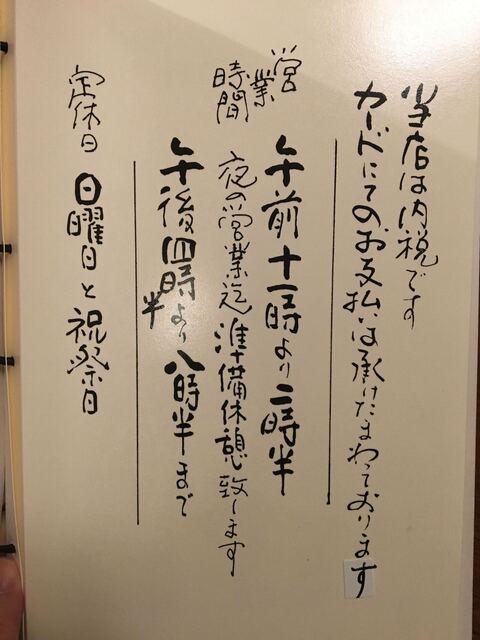 当店は内税です
カードにてのお支払いは承けたまわっております
営業時間
午前十一時より二時半
夜の営業迄準備休憩致します
午後四時半より八時半まで
定休日 日曜日と祝祭日